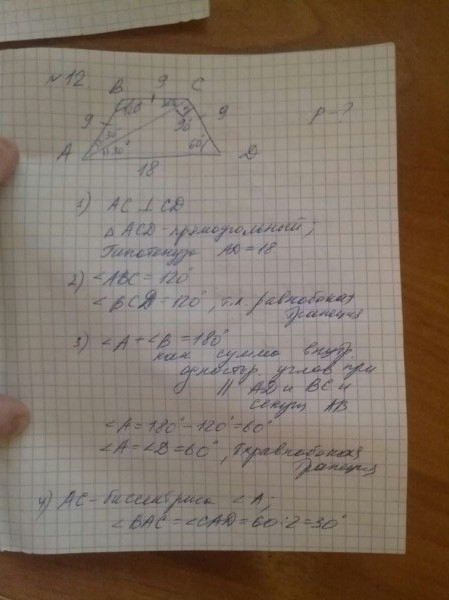 №12.
B 9 C
9 120 30° 9 P-?
30° 90°
A 30° 60° D
18
1) AC ⊥ CD
△ ACD - прямоугольный;
Гипотенуза AD = 18
2) ∠ABC = 120°
∠BCD = 120°, т.к. равнобокая
трапеция
3) ∠A + ∠B = 180°
как сумма внутр.
одностор. углов при
|| AD и BC и
секущ AB
∠A = 180° - 120° = 60°
∠A = ∠D = 60°, т.к равнобокая
трапеция
4) AC - биссектриса ∠A;
∠BAC = ∠CAD = 60:2 = 30°